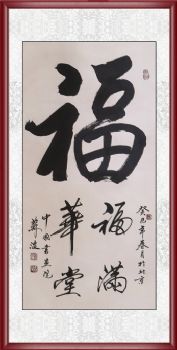 福
福滿
華堂
癸巳年春月於北京
中國書畫院